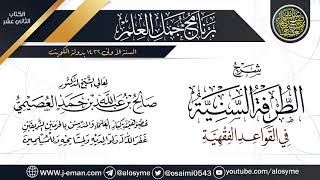 الكتاب
الثاني عشر
برنامج جمل العلم
السنة الأولى ١٤٣٦ بدولة الكويت
شرح
الطرفة السنية
في القواعد الفقهية
لمعالي الشيخ الدكتور
صالح بن عبد الله بن حمد العصيمي
عضو هيئة كبار العلماء والمدرس بالحرمين الشريفين
غفر الله له ولوالديه ولمشايخه وللمسلمين
www.j-eman.com
@osaimi0543
www.youtube.com/alosyme